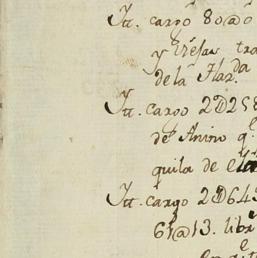 Itt. cargo 80@0
y Tresas tra
de la Haz.da
Itt. cargo 2D258
de Anino q.e
quila de el
Itt. cargo 2D643
61@13. libr